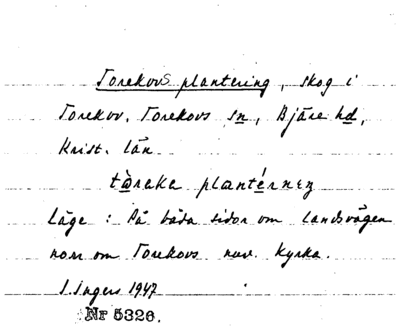 Torekovs plantering, skog i
Torekov. Torekovs sn, Bjäre hd,
Krist. län
plantérnıŋ
Läge: På båda sidor om landsvägen
norr om Torekovs nuv. kyrka.
I. Ingers 1947
Nr 5326.